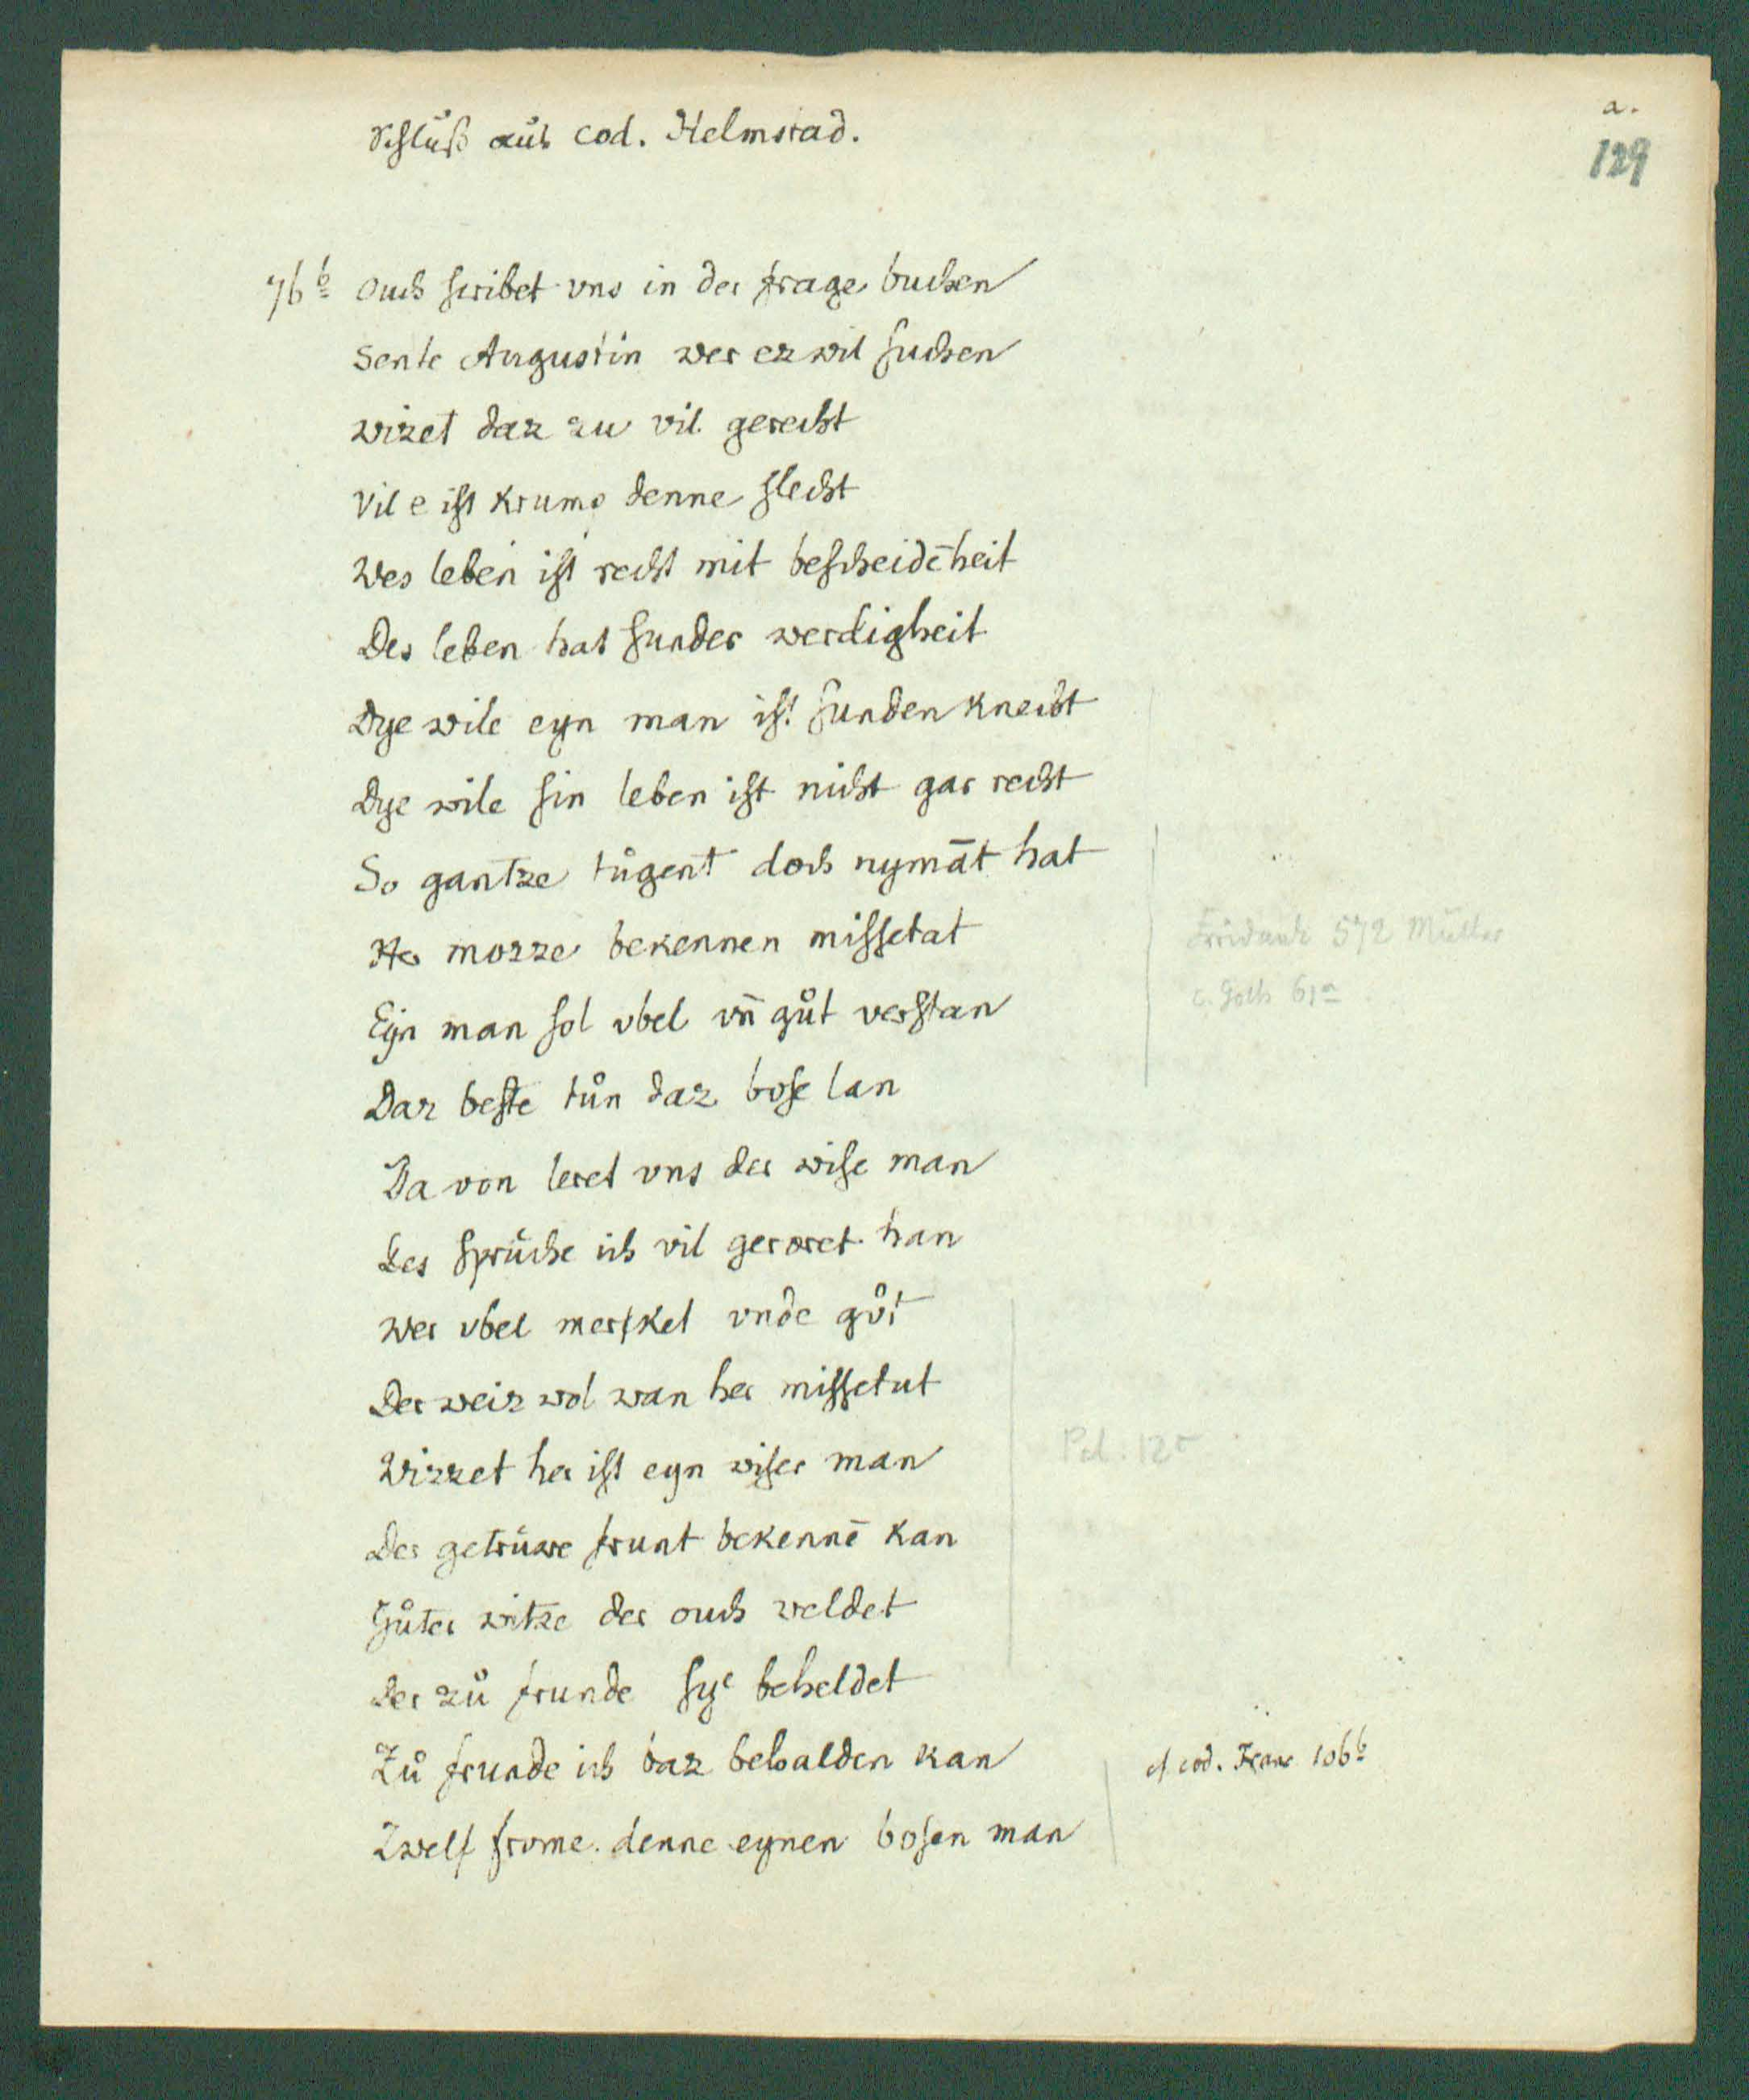 a.
129
Schluß aus cod. Helmstad.
76b ouch scribet vns in der frage buchen
Sente Augustin wer ez wil suchen
wizet daz zu vil gerecht
Vil e ist krump denne slecht
Wes leben ist recht mit bescheidēheit
Des leben hat sunder werdigheit
Dye wile eyn man ist sunden knecht
Dye wile sin leben ist nicht gar recht
So gantze tůgent doch nymāt hat
Her mozze bekennen missetat
Eyn man sol vbel vn̄ gůt verstan
Daz beste tůn daz bose lan
Da von leret vns der wise man
Des sprüche ich vil geroret han
Wer vbel merket vnde gůt
Der weiz wol wan her missetut
Wizzet her ist eyn wiser man
Der getrüwe frunt bekennē kan
Gůter witze der ouch weldet
Der zů frunde sye beheldet
Zů frunde ich baz behalden kan
Zwelf frome denne eynen bosen man
Fridank 572 Müller
c. Goth 61a
Pal. 12
cf cod. Franc 106b